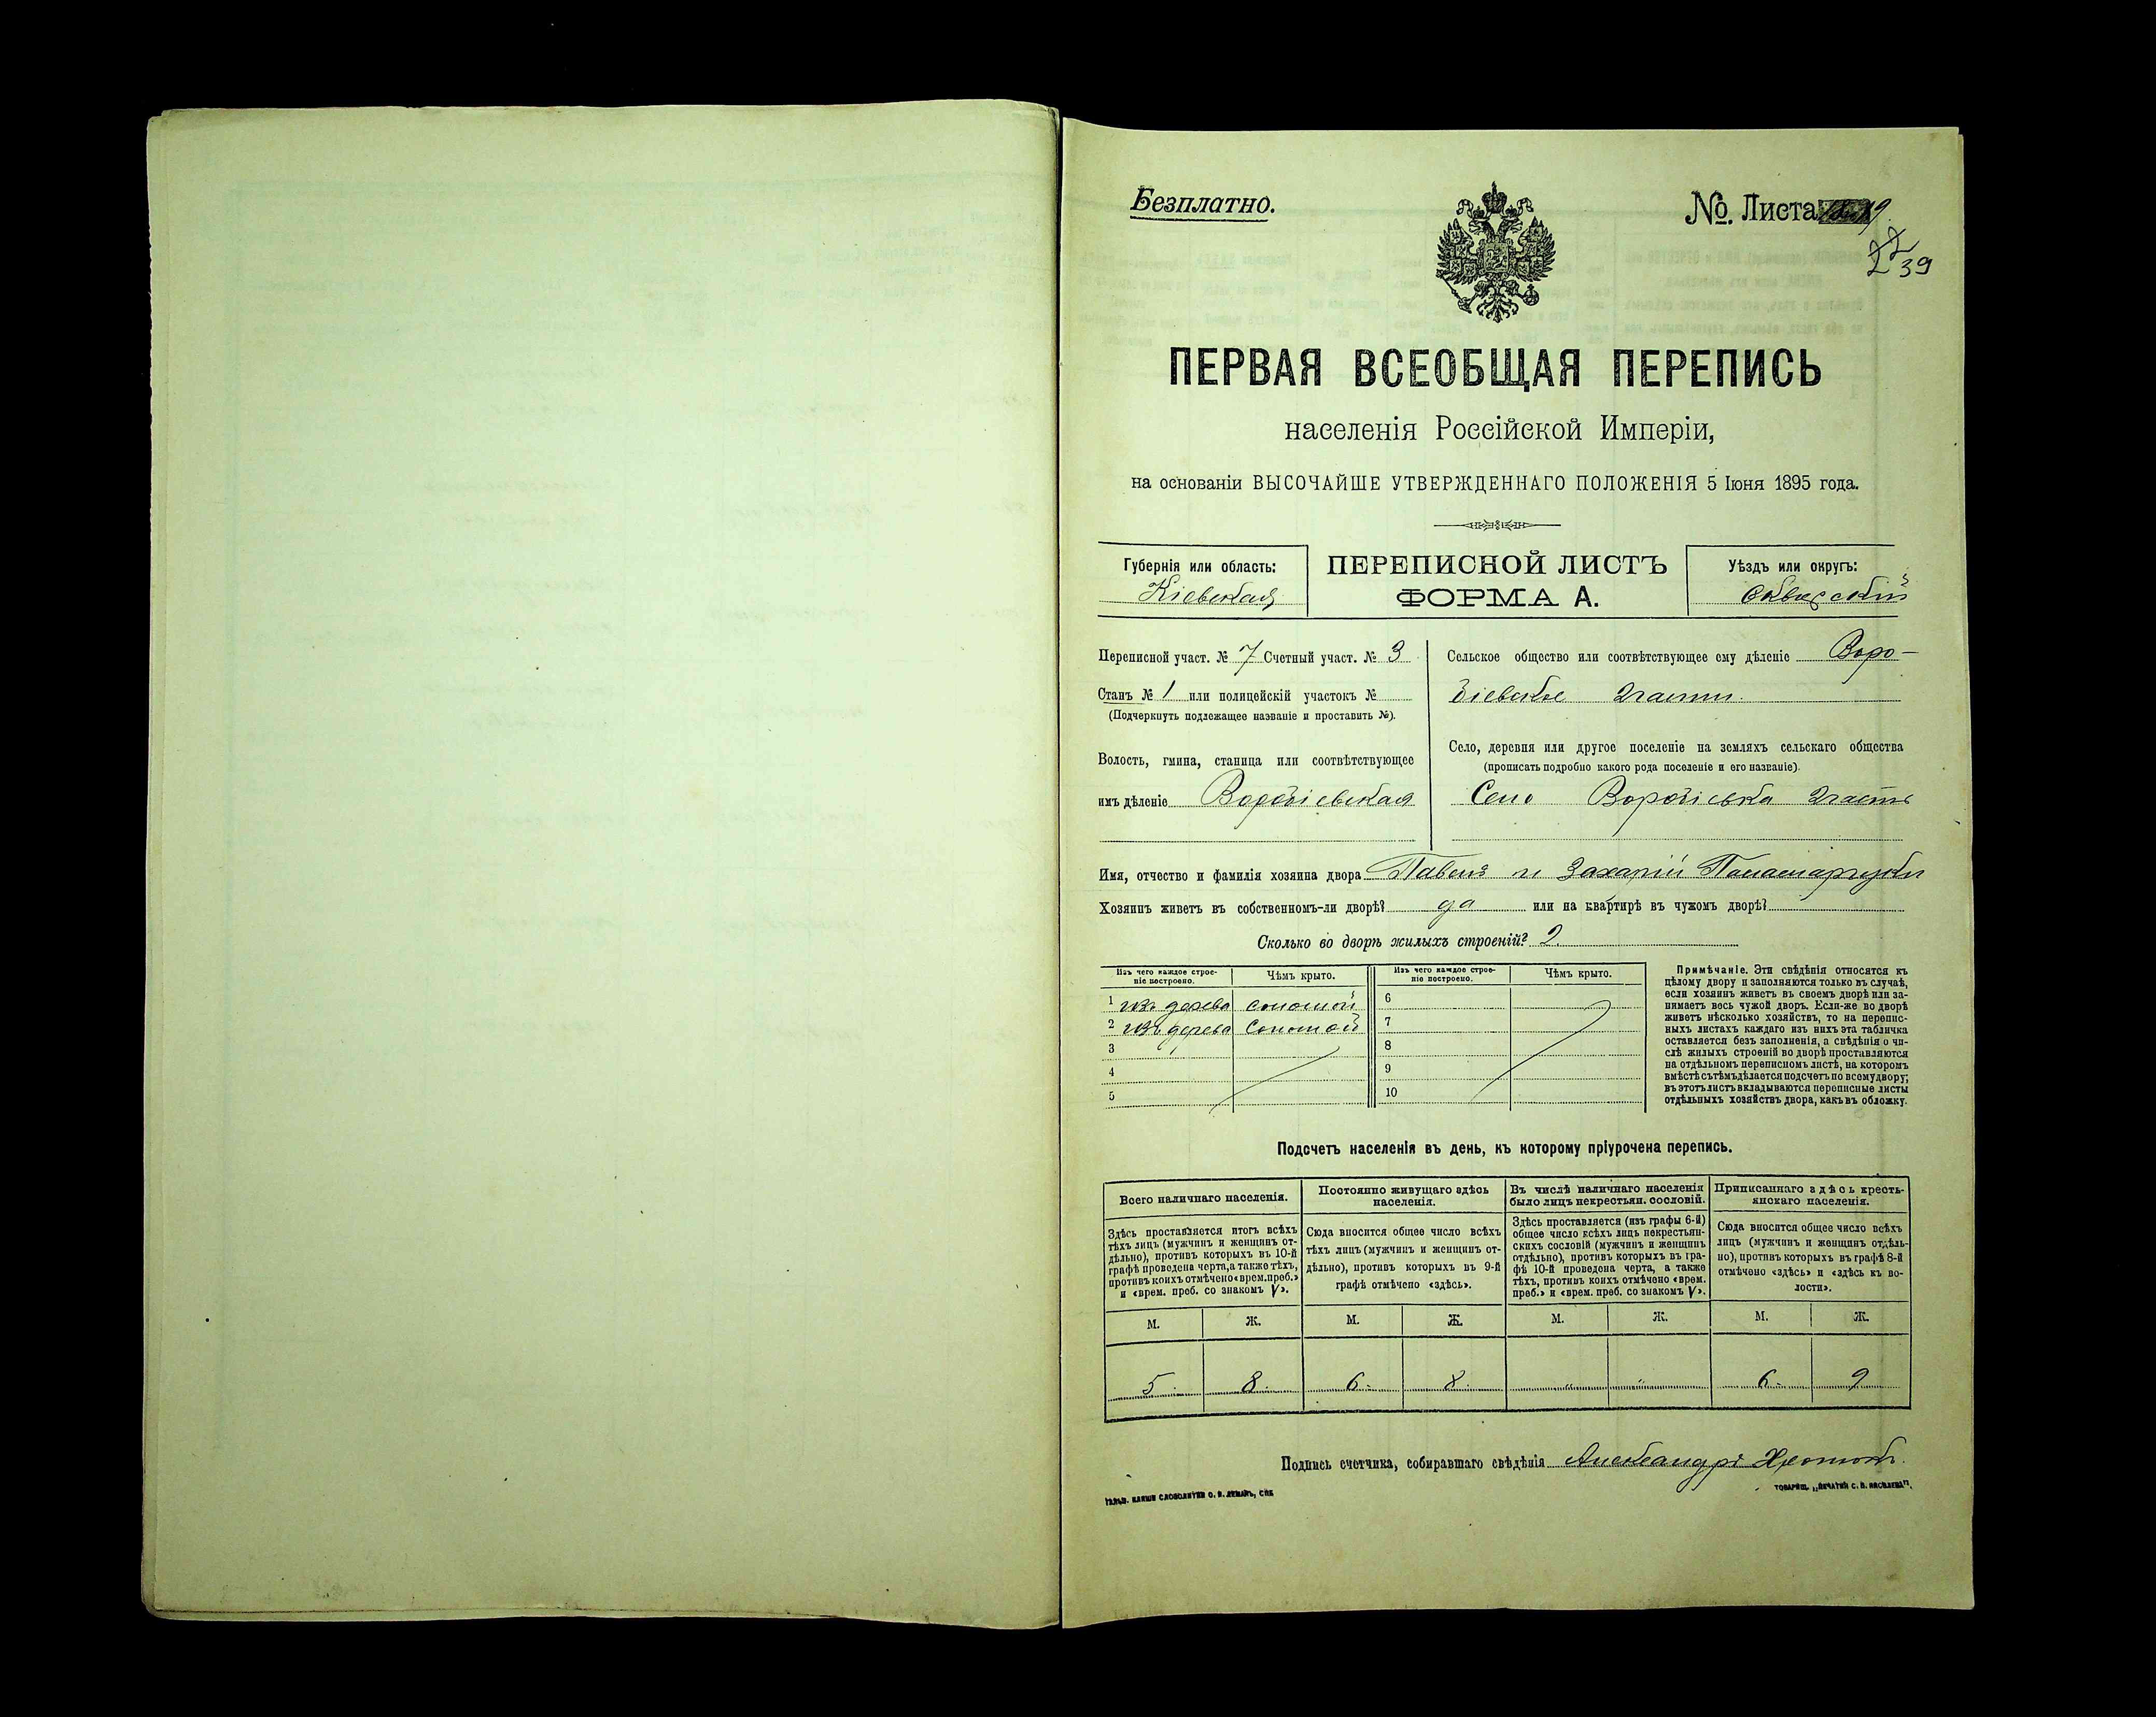 Безплатно.
№ Листа 19.
39
ПЕРВАЯ ВСЕОБЩАЯ ПЕРЕПИСЬ
населенія Россійской Имперіи,
на основаніи ВЫСОЧАЙШЕ УТВЕРЖДЕННАГО ПОЛОЖЕНІЯ 5 Іюня 1895 года.
Губернія или область:
Кіевская
ПЕРЕПИСНОЙ ЛИСТЪ
ФОРМА А.
Уѣздъ или округъ:
Сквирскій
Переписной участ. № 7 Счетный участ. № 3
Станъ № 1 или полицейскій участокъ №
(Подчеркнуть подлежащее названіе и проставить №).
Волость, гмина, станица или соотвѣтствующее
имъ дѣленіе Воробіевская
Сельское общество или соотвѣтствующее ему дѣленіе Воро-
біевское 2 части.
Село, деревня или другое поселеніе на земляхъ сельскаго общества
(прописать подробно какого рода поселеніе и его названіе).
Село Воробіевка 2 часть
Имя, отчество и фамилія хозяина двора Павелъ и Захарій
Хозяинъ живетъ въ собственномъ-ли дворѣ? да или на квартирѣ въ чужомъ дворѣ?
Сколько во дворѣ жилыхъ строеній? 2.
Изъ чего каждое строе-
ніе построено.
Чѣмъ крыто.
Изъ чего каждое строе-
ніе построено.
Чѣмъ крыто.
1 изъ дерева соломой 6
2 изъ дерева соломой 7
3 8
4 9
5 10
Примѣчаніе. Эти свѣдѣнія относятся къ
цѣлому двору и заполняются только въ случаѣ,
если хозяинъ живетъ въ своемъ дворѣ или за-
нимаетъ весь чужой дворъ. Если-же во дворѣ
живетъ нѣсколько хозяйствъ, то на перепис-
ныхъ листахъ каждаго изъ нихъ эта табличка
оставляется безъ заполненія, а свѣдѣнія о чи-
слѣ жилыхъ строеній во дворѣ проставляются
на отдѣльномъ переписномъ листѣ, на которомъ
вмѣстѣ съ тѣмъ дѣлается подсчетъ по всему двору;
въ этотъ листъ вкладываются переписные листы
отдѣльныхъ хозяйствъ двора, какъ въ обложку.
Подсчетъ населенія въ день, къ которому пріурочена перепись.
Всего наличнаго населенія.
Здѣсь проставляется итогъ всѣхъ
тѣхъ лицъ (мужчинъ и женщинъ от-
дѣльно), противъ которыхъ въ 10-й
графѣ проведена черта, а также тѣхъ,
противъ коихъ отмѣчено «врем. преб.»
и «врем. преб. со знакомъ V».
Постоянно живущаго здѣсь
населенія.
Сюда вносится общее число всѣхъ
тѣхъ лицъ (мужчинъ и женщинъ от-
дѣльно), противъ которыхъ въ 9-й
графѣ отмѣчено «здѣсь».
Въ числѣ наличнаго населенія
было лицъ некрестьян. сословій.
Здѣсь проставляется (изъ графы 6-й)
общее число всѣхъ лицъ некрестьян-
скихъ сословій (мужчинъ и женщинъ
отдѣльно), противъ которыхъ въ гра-
фѣ 10-й проведена черта, а также
тѣхъ, противъ коихъ отмѣчено «врем.
преб.» и «врем. преб. со знакомъ V».
Приписаннаго здѣсь кресть-
янскаго населенія.
Сюда вносится общее число всѣхъ
лицъ (мужчинъ и женщинъ отдѣль-
но), противъ которыхъ въ графѣ 8-й
отмѣчено «здѣсь» и «здѣсь къ во-
лости».
М. Ж. М. Ж. М. Ж. М. Ж.
5 8 6 8 " " 6 9
Подпись счетчика, собиравшаго свѣдѣнія Александръ